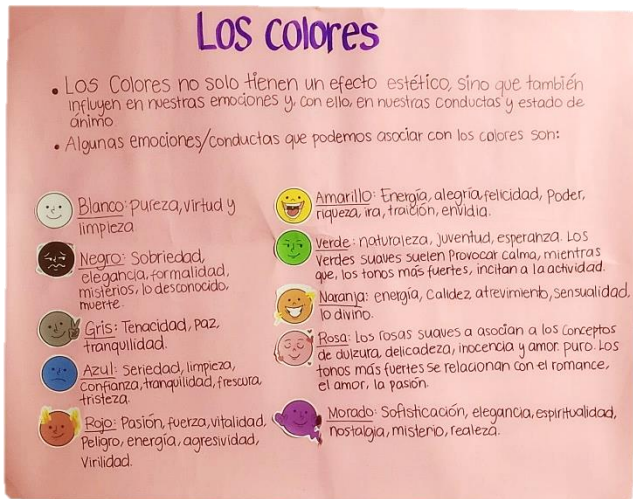 Los colores
• Los Colores no solo tienen un efecto estético, sino que también
influyen en nuestras emociones y, con ello, en nuestras conductas y estado de
ánimo
• Algunas emociones/conductas que podemos asociar con los colores son:
Blanco: pureza, virtud y
limpieza
Negro: Sobriedad,
elegancia, formalidad,
misterios, lo desconocido,
muerte.
Gris: Tenacidad, paz,
tranquilidad.
Azul: Seriedad, limpieza,
confianza, tranquilidad, frescura,
tristeza.
Rojo: Pasión, fuerza, vitalidad,
Peligro, energía, agresividad,
Virilidad.
Amarillo: Energía, alegría, felicidad, Poder,
riqueza, ira, traición, envidia.
Verde: naturaleza, juventud, esperanza. Los
Verdes suaves suelen Provocar calma, mientras
que, los tonos más fuertes, incitan a la actividad.
Naranja: energía, Calidez, atrevimiento, sensualidad,
lo divino.
Rosa: Los rosas suaves a asocian a los conceptos
de dulzura, delicadeza, inocencia y amor puro. Los
tonos más fuertes se relacionan con el romance,
el amor, la pasión.
Morado: Sofisticación, elegancia, espiritualidad,
nostalgia, misterio, realeza.